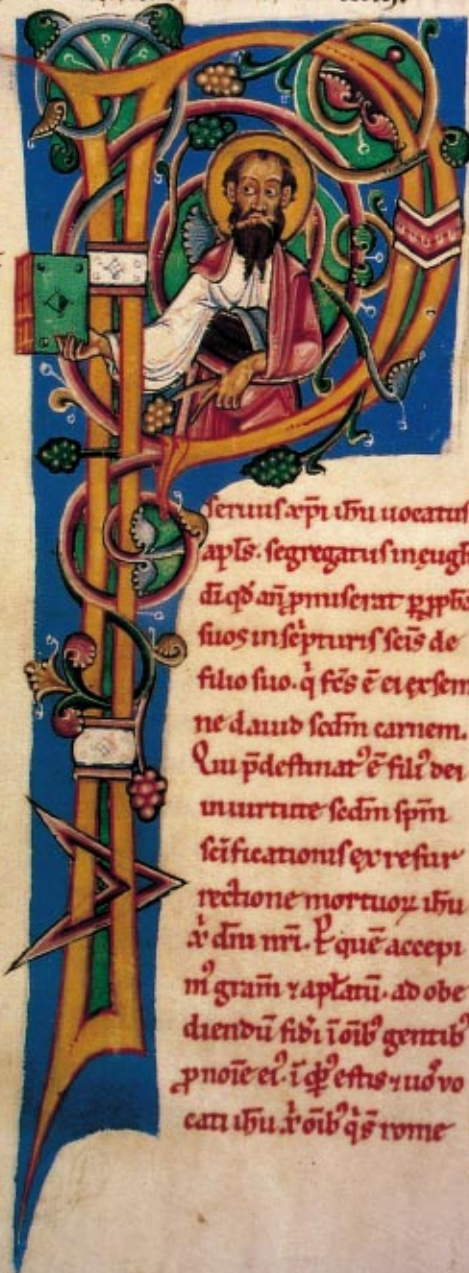 P
seruus xp̄i ihu uocatus
apl̄s. segregatus in eugl̄
di qd̄ an̄ pmiserat p̱ ꝓph̄s
suos in sc̄pturis sc̄is de
filio suo. q̇ fc̄s ē ei ex sem
ne dauid scdm̄ carnem.
Qui p̄destinatꝰ ē filiꝰ dei
in uirtute scdm̄ sp̄m
sc̄ificationis ex resur
rectione mortuoꝝ ihu
x̄ dn̄i nr̄i. P quē accepi
mꝰ gram̄ ⁊ apl̄atū. ad obe
diendū fidi ī oīb gentibꝰ
ꝓ noīe eiꝰ. ī qͥbꝰ estis ⁊ uos uo
cati ihu x̄ oībꝰ qͥ s̄ rome